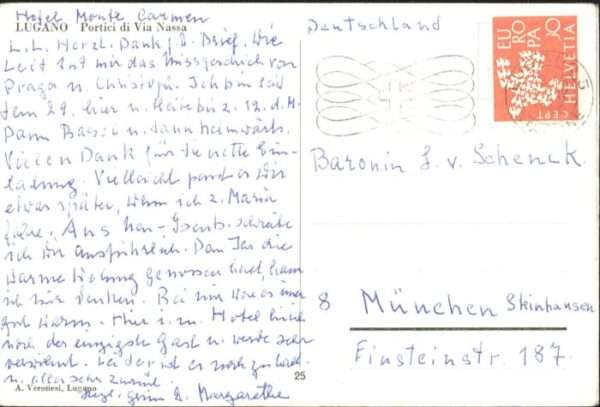 Hotel Monte Carmen
LUGANO Portici di Via Nassa
L. L. Herzl. Dank f. d. Brief. Wie
Leid tut mir das Missgeschick von
u. Christoph. Ich bin seit
dem 29. hier u. bleibe bis 2. 12. d. M.
Dann Basel u. dann heimwärts.
Vielen Dank für die nette Ein-
ladung. Vielleicht passt es Dir
etwas später, wenn ich z. Maria
fahre. Aus schreibe
ich Dir ausführlich. Dass die
warme Wohnung genossen hast, kann
ich mir denken. Bei mir war es immer
gut warm. Hier i. m. Hotel bin ich
noch der einzigste Gast u. werde sehr
verwöhnt.
u. alles sehr zurück.
Herzl. Margarethe
25
A. Veronesi, Lugano
Deutschland
EUROPA
CEPT
HELVETIA
30
Baronin v. Schenck
8 München
Einsteinstr. 187.